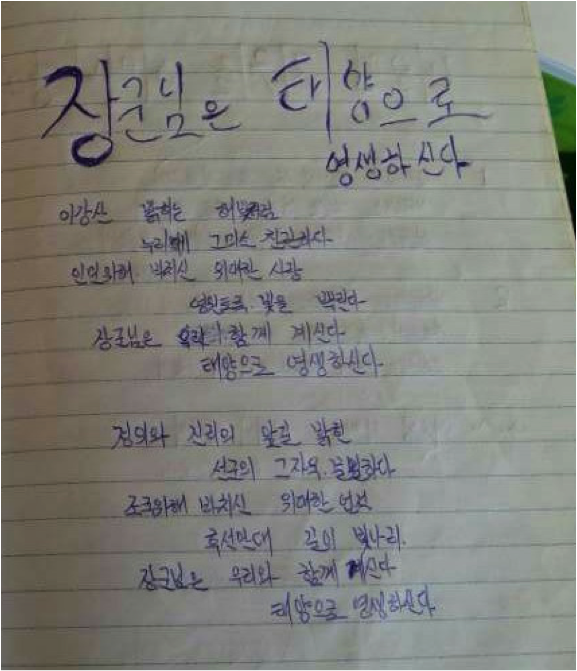 장군님은 태양으로
영생하신다
이강산 밝히는 해빛처럼
누리에 그미소 친근하다
인민위해 바치신 위대한 사랑
영원토록 빛을 뿌린다
장군님은 우리와 함께 계신다
태양으로 영생하신다
정의와 진리의 앞길 밝힌
선군의 그자욱 불멸하다
조국위해 바치신 위대한 업적
후손만대 길이 빛나리.
장군님은 우리와 함께 계신다
태양으로 영생하신다